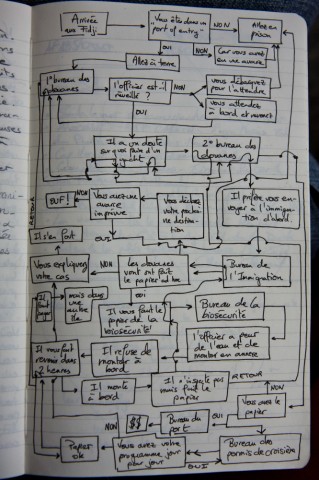 Arrivée
aux Fidji
Vous êtes dans un
"port of entry"
NON
Allez en
prison
OUI
NON
Allez à terre
1er bureau des
douanes
l'officier est-il
réveillé ?
vous débarquez
pour l'attendre
vous attendez
à bord et
OUI
Il a un doute
sur quoi faire d'un
2e bureau des
douanes
OUF !
NON
Vous avez une
avarie
imprévue
Vous déclarez
votre prochaine
destination
Il préfère vous en-
voyer à l'immigra-
tion d'abord
RETOUR
Il s'en fout
OUI
Vous expliquez
votre cas
NON
les douanes
vont ont fait
le papier
Bureau de
l'Immigration
OUI
Il
mais dans
une
Il vous faut le
papier de la
biosécurité
Bureau de la
biosécurité
Il vous faut
revenir dans
2 heures
Il refuse de
monter à
bord
l'officier a peur
de l'eau et de
monter en annexe
Il monte
à bord
Il n'inspecte pas
mais fait le
papier
RETOUR
NON
Vous avez le
papier
NON
$$
Bureau du
port
OUI
Papier
ok
Vous avez votre
programme jour
pour jour
OUI
Bureau des
permis de croisière